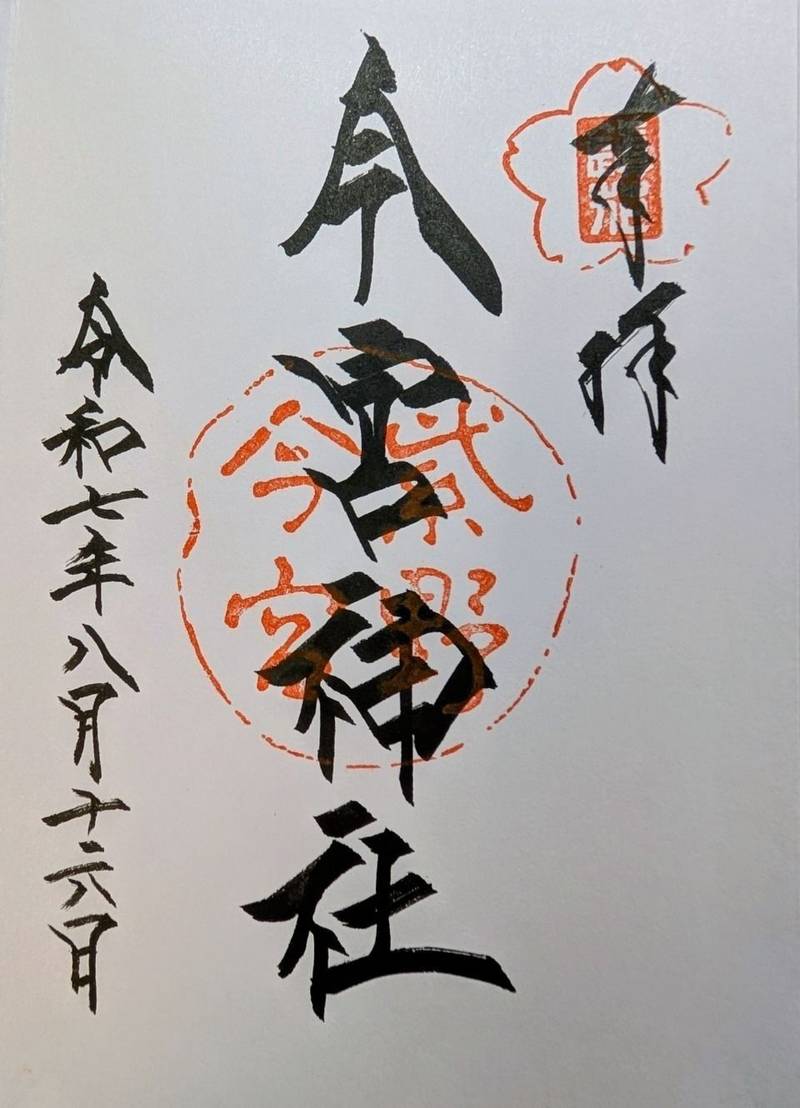 奉拝
今宮神社
紫野
今宮
令和七年八月十六日